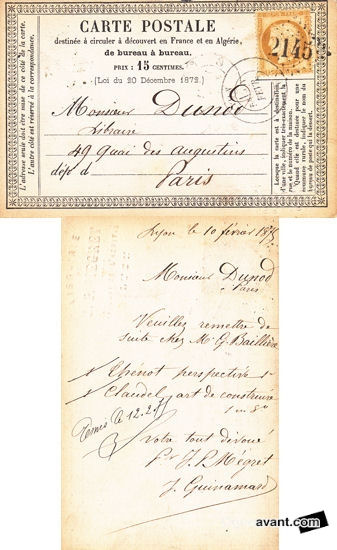 CARTE POSTALE
destinée à circuler à découvert en France et en Algérie,
de bureau à bureau.
PRIX : 15 CENTIMES.
(Loi du 20 Décembre 1872.)
2145
L'adresse seule doit être mise de ce côté de la carte.
L'autre côté est réservé à la correspondance.
Monsieur Dunod
Libraire
49 Quai des augustins
Paris
Lorsque la carte est à destination
d'une ville, indiquer très-exactement la
rue et le numéro de la maison.
Quand elle est destinée pour une
commune rurale, indiquer le nom du
bureau de poste qui la dessert.
Lyon le 10 février 187
Monsieur Dunod
à Paris
Veuillez remettre de
suite chez Mr G. Baillière
1 Thénot perspective
1 Claudel art de construire
1 in 8°
Remis le 12.2.
Votre tout dévoué
pr J. P. Mégret
J. Guinamard
avant.com